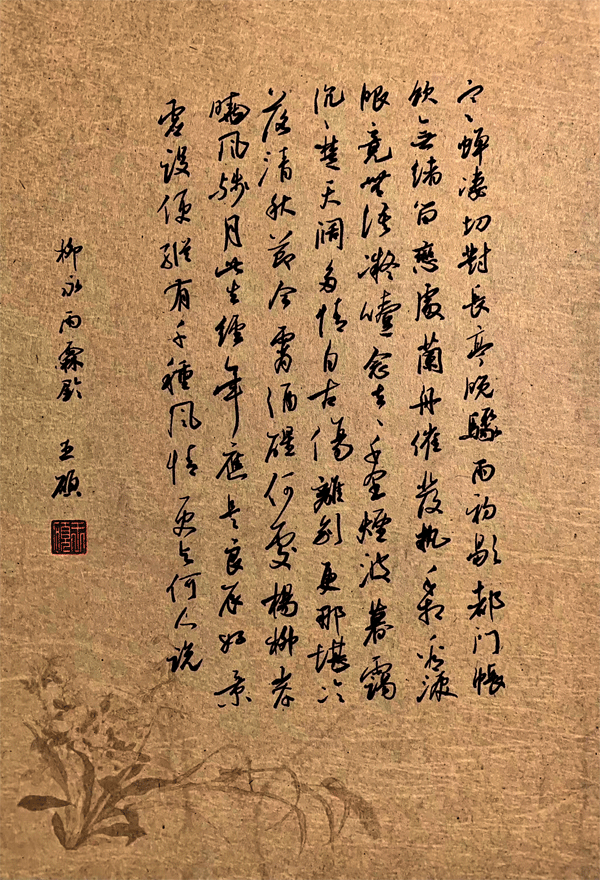 寒蟬凄切對長亭晚驟雨初歇都門帳
飲無緒留戀處蘭舟催發執手相看淚
眼竟無語凝噎念去、千里煙波暮靄
沉、楚天闊多情自古傷離別更那堪冷
落清秋節今宵酒醒何處楊柳岸
曉風殘月此去經年應是良辰好景
虛設便縱有千種風情更與何人説
柳永雨霖鈴 王碩